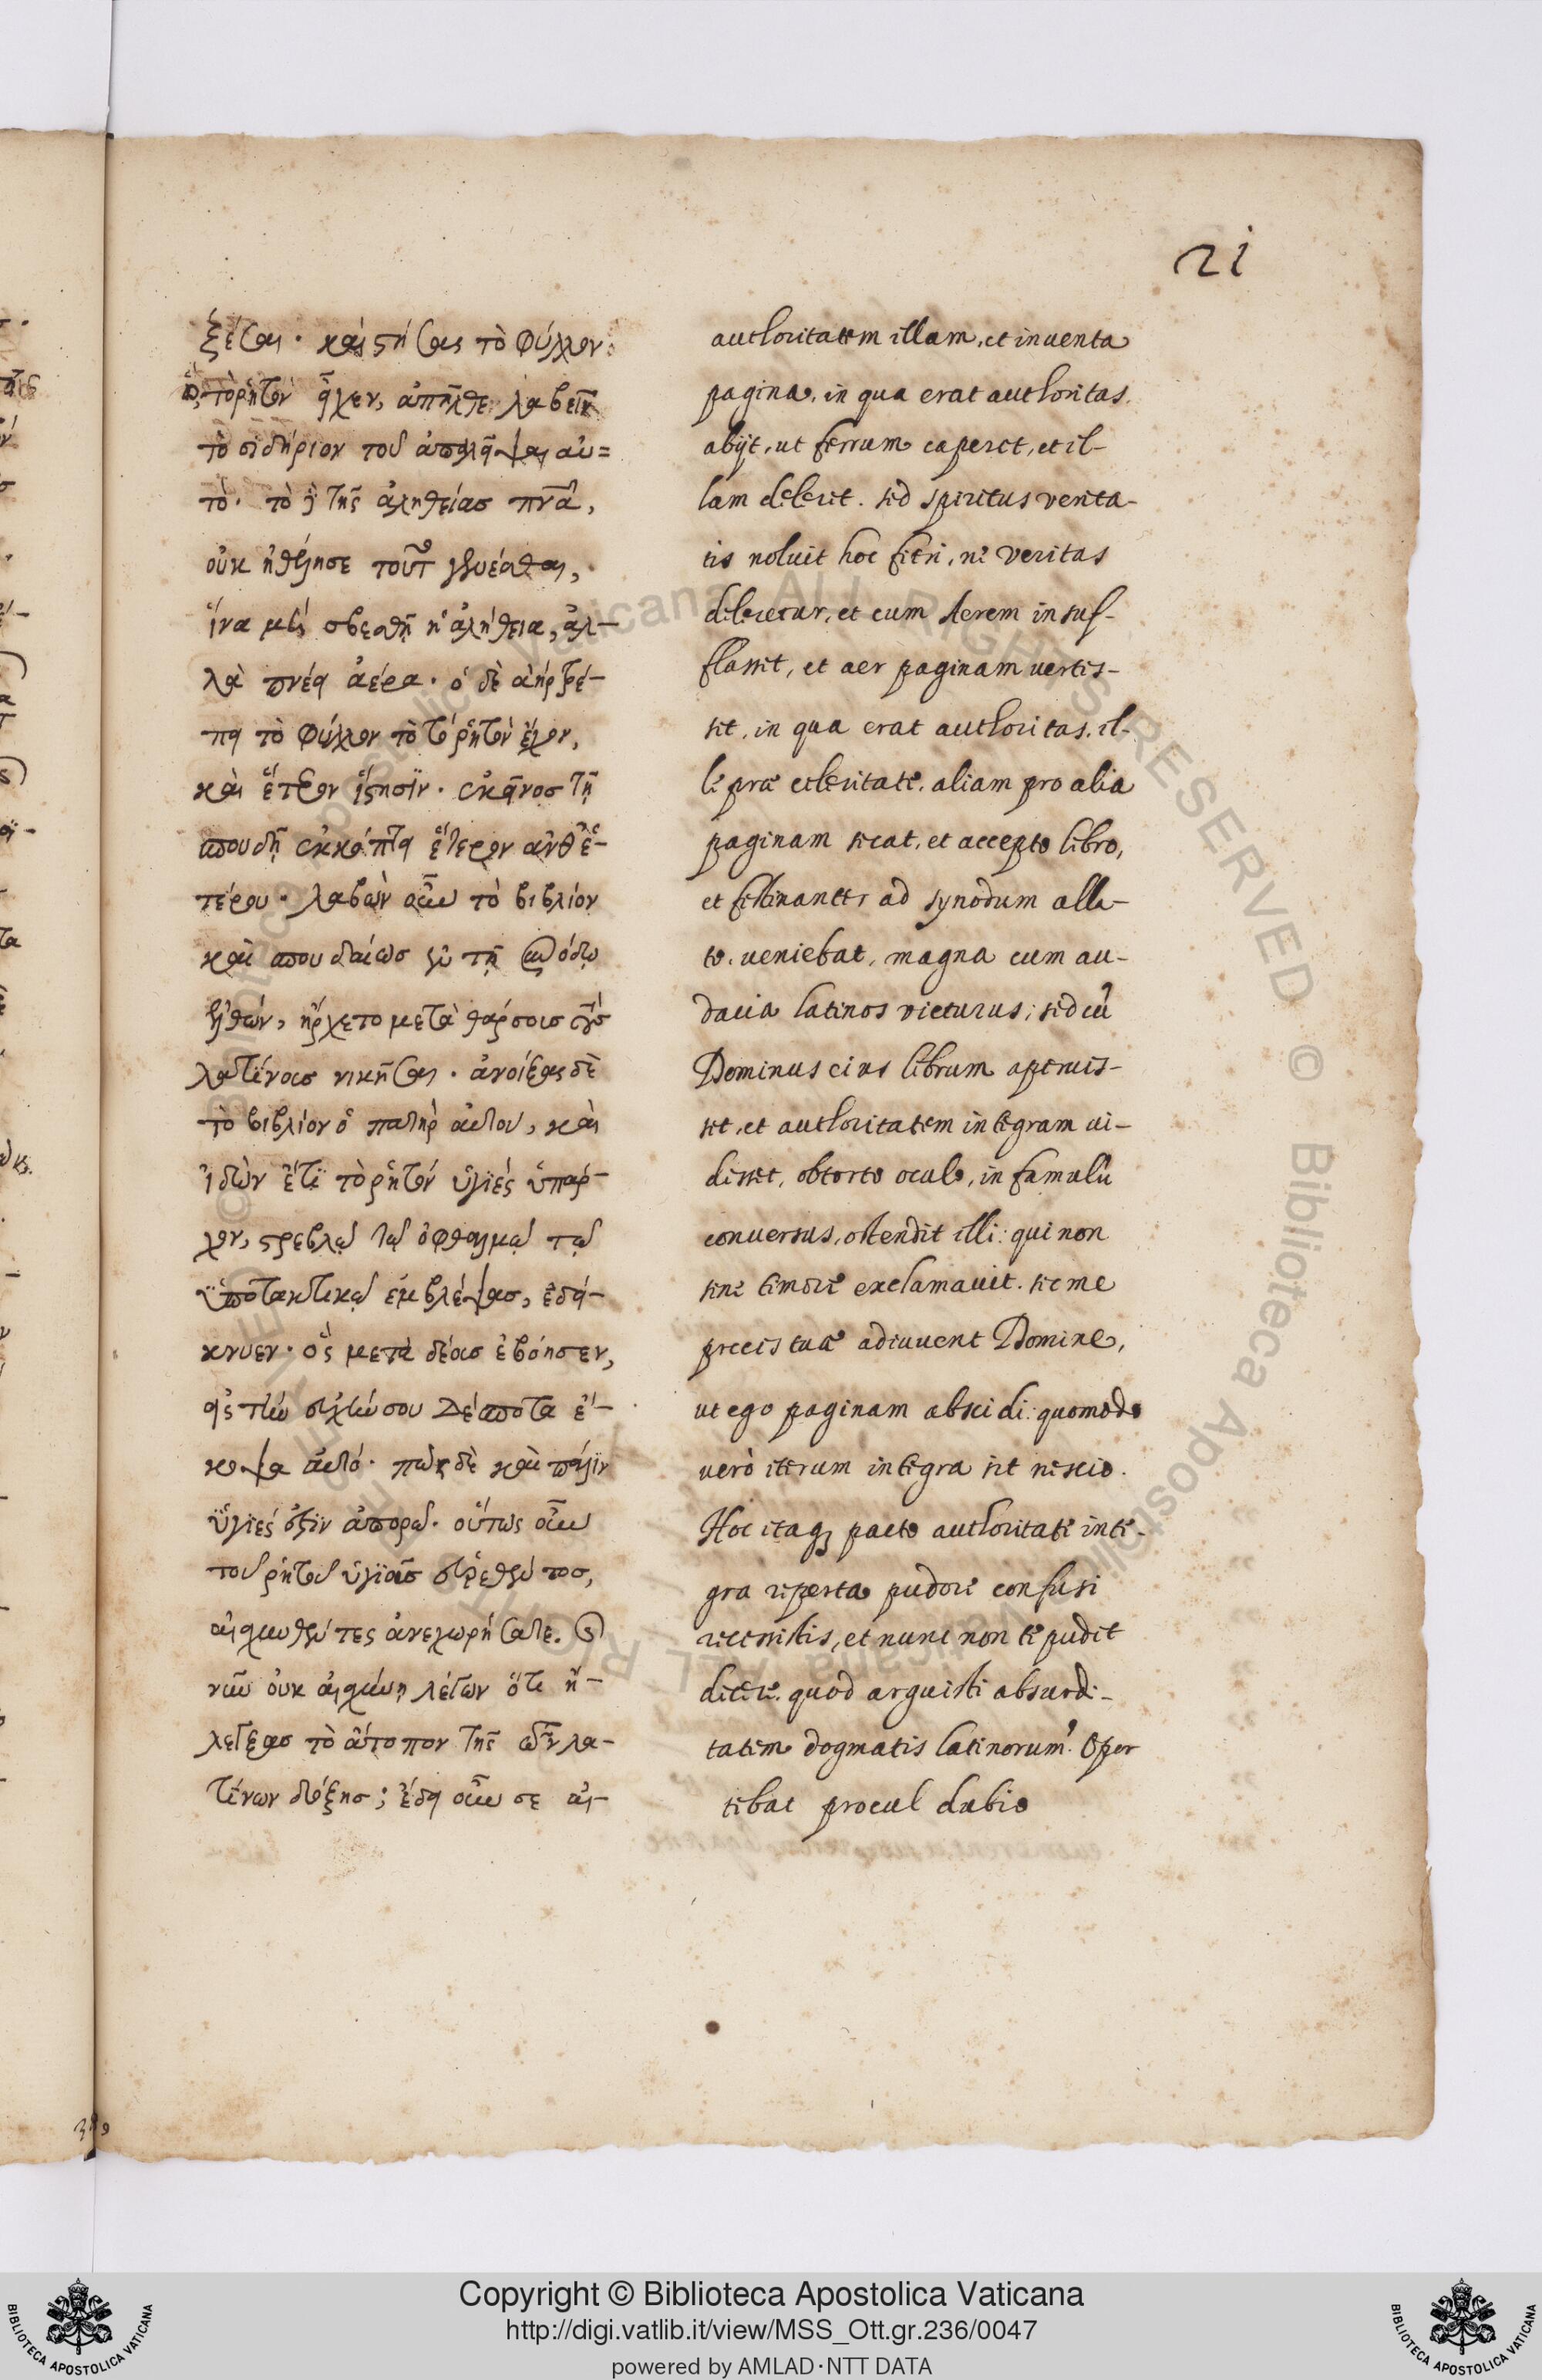 21
ξέσαι · καὶ στήσας τὸ φύλλον
ὃ τὸ ῥητὸν εἶχεν, ἀπῆλθε λαβεῖν
τὸ σιδήριον τοῦ ἀπαλεῖψαι αὐ=
τό · τὸ δὲ τῆς ἀληθείας πνᾶ,
οὐκ ἠθέλησε τοῦτο γενέσθαι,
ἵνα μὴ σβεσθῇ ἡ ἀλήθεια, ἀλ-
λὰ πνέει ἀέρα · ὁ δὲ ἀὴρ τρέ-
πει τὸ φύλλον τὸ τὸ ῥητὸν ἔχον,
καὶ ἕτερον ἵστησιν · ἐκεῖνος τῇ
σπουδῇ ἐκκόπτει ἕτερον ἀνθ' ἑ-
τέρου · λαβὼν οὖν τὸ βιβλίον
καὶ σπουδαίως ἐν τῇ συνόδῳ
ἐλθών, ἤρχετο μετὰ θάρσους τοὺς
λατίνους νικῆσαι · ἀνοίξας δὲ
τὸ βιβλίον ὁ πατὴρ αὐτοῦ, καὶ
ἰδὼν ἔτι τὸ ῥητόν ὑγιές ὑπάρ-
χον, στρεβλῷ τῷ ὀφθαλμῷ τῷ
ὑποτακτικῷ ἐμβλέψας, ἐδεί-
κνυεν · ὃς μετὰ δέους ἐβόησεν,
εἰς τὴν εὐχήν σου Δέσποτα ἔ-
κοψα αὐτό · πῶς δὲ καὶ πάλιν
ὑγιές ἐστιν ἀπορῶ · οὕτως οὖν
τοῦ ῥητοῦ ὑγιοῦς εὑρεθέντος,
αἰσχυνθέντες ἀνεχωρήσατε. καὶ
νῦν οὐκ αἰσχύνῃ λέγων ὅτι ἤ-
λεγξας τὸ ἄτοπον τῆς τῶν λα-
τίνων δόξης; ἔδει οὖν σε αἰ-
authoritatem illam, et inuenta
pagina, in qua erat authoritas.
abijt, ut ferrum caperet, et il-
lam deleret. sed spiritus verita-
tis noluit hoc fieri, ne veritas
deleretur, et cum Aerem insuf-
flasset, et aer paginam vertis-
set, in qua erat authoritas, il-
le præ celeritate, aliam pro alia
paginam secat, et accepto libro,
et festinanter ad synodum alla-
to, ueniebat, magna cum au-
dacia latinos victurus; sed cũ
Dominus eius librum aperuis-
set, et authoritatem integram ui-
disset, obtorto oculo, in famulũ
conuersus, ostendit illi: qui non
sine timore exclamauit. sic me
preces tuæ adiuuent Domine,
ut ego paginam abscidi: quomodo
verò iterum integra sit nescio.
Hoc itaq; pacto authoritate inte-
gra reperta pudore confusi
recessistis, et nunc non te pudet
dicere, quod arguisti absurdi-
tatem dogmatis latinorum? Opor
tebat procul dubio
Copyright © Biblioteca Apostolica Vaticana
http://digi.vatlib.it/view/MSS_Ott.gr.236/0047
powered by AMLAD·NTT DATA
BIBLIOTECA APOSTOLICA VATICANA
BIBLIOTECA APOSTOLICA VATICANA